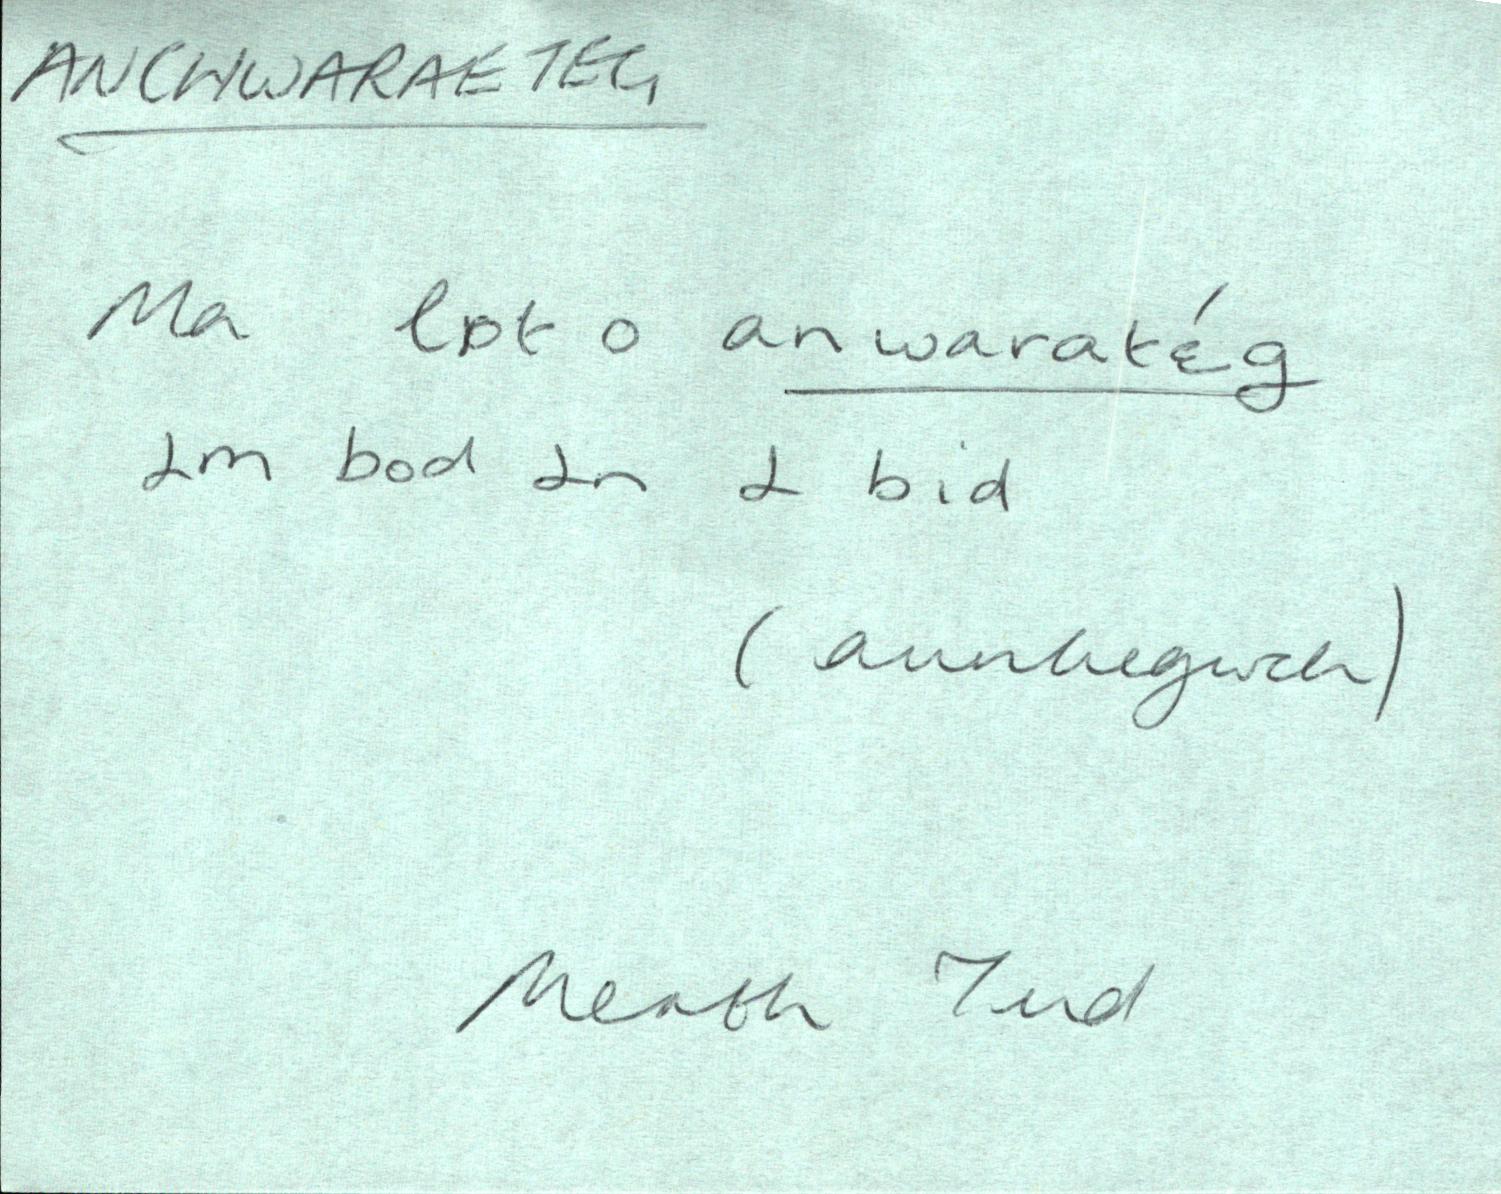 ANCHWARAE TEG
Ma lot o anwaratég
ɨm bod ɨn ɨ bid
(annhegwch)
Merth Tud